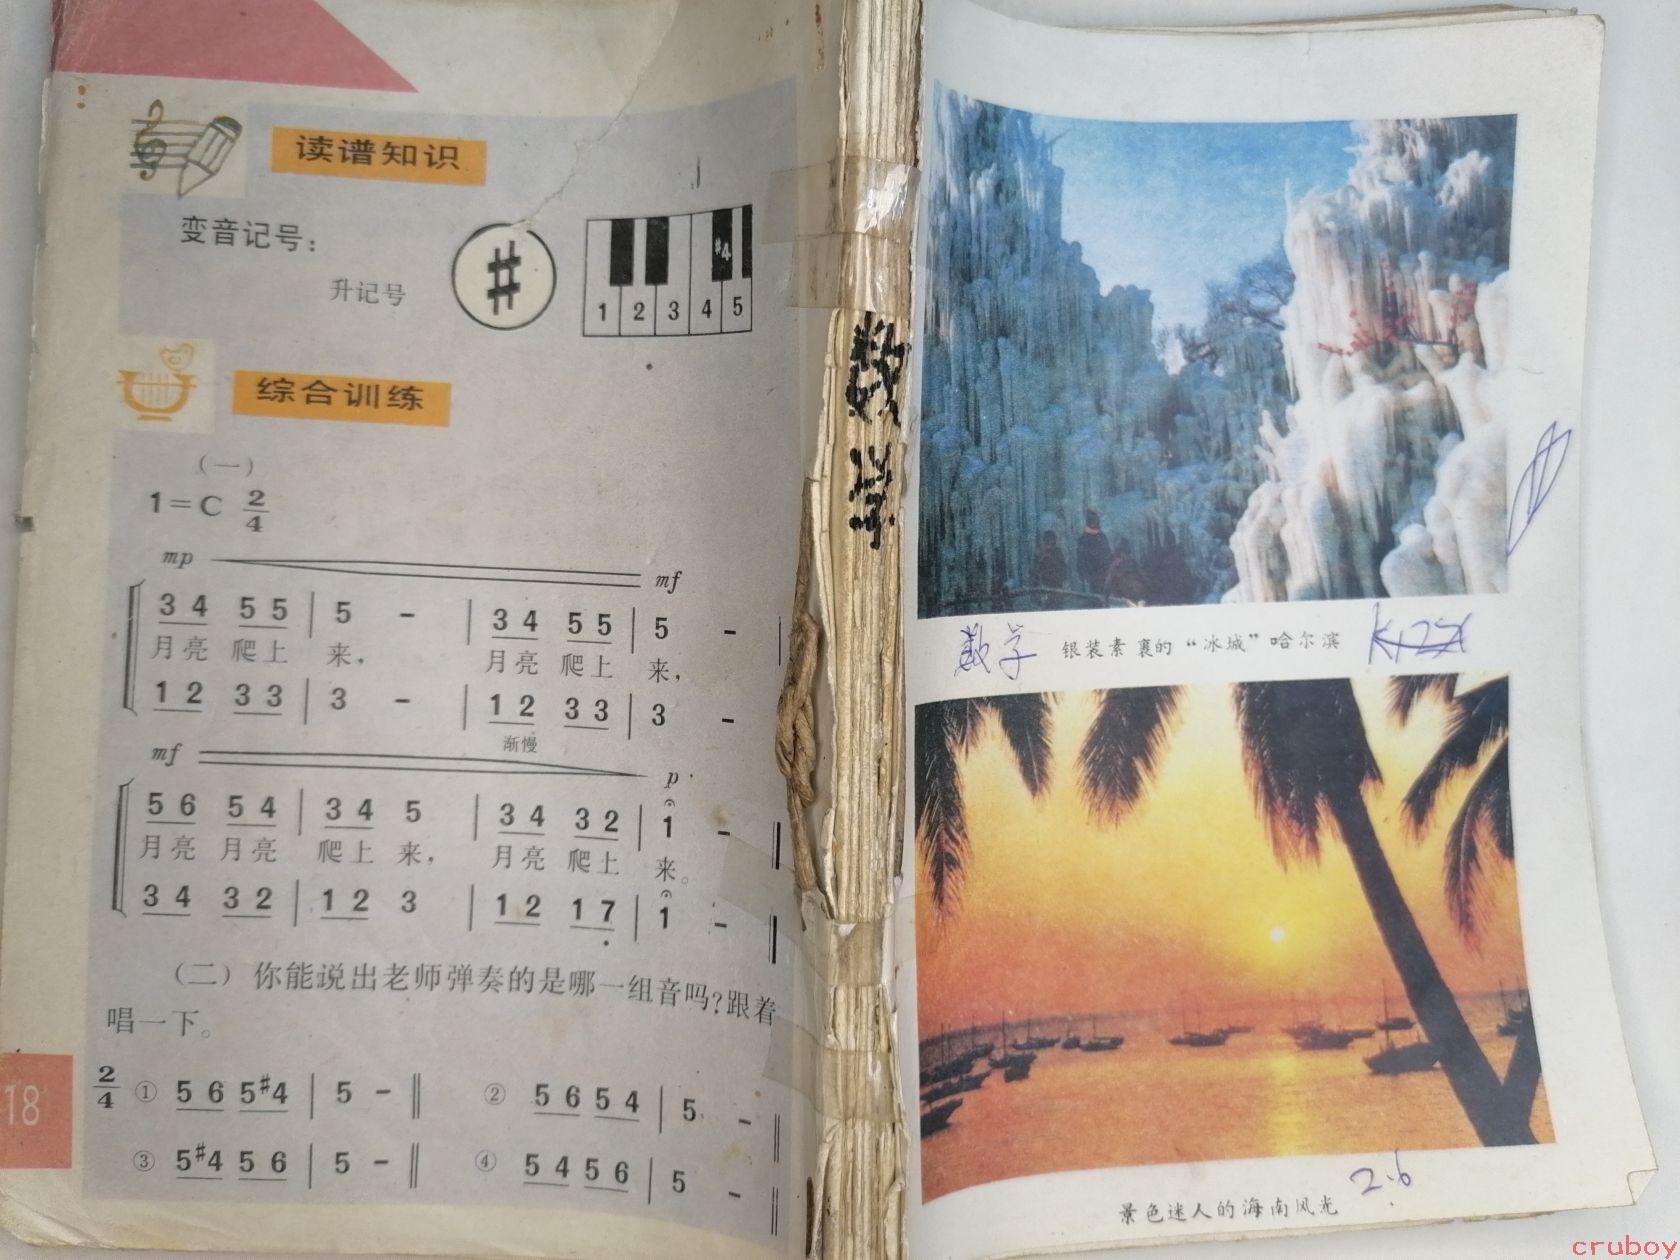 读谱知识
变音记号：
升记号
#
#4
1 2 3 4 5
综合训练
（一）
1=C 2/4
mp mf
3 4 5 5 | 5 - | 3 4 5 5 | 5 - |
月亮 爬上 来， 月亮 爬上 来，
1 2 3 3 | 3 - | 1 2 3 3 | 3 -
渐慢
mf p
5 6 5 4 | 3 4 5 | 3 4 3 2 | 1 - ‖
月亮 月亮 爬上 来， 月亮 爬上 来。
3 4 3 2 | 1 2 3 | 1 2 1 7̣ | 1 - ‖
（二）你能说出老师弹奏的是哪一组音吗？跟着
唱一下。
2/4 ① 5 6 5 #4 | 5 - ‖ ② 5 6 5 4 | 5 - ‖
③ 5 #4 5 6 | 5 - ‖ ④ 5 4 5 6 | 5 - ‖
18
数学
数学
银装素裹的“冰城”哈尔滨
景色迷人的海南风光
2.6
cruboy